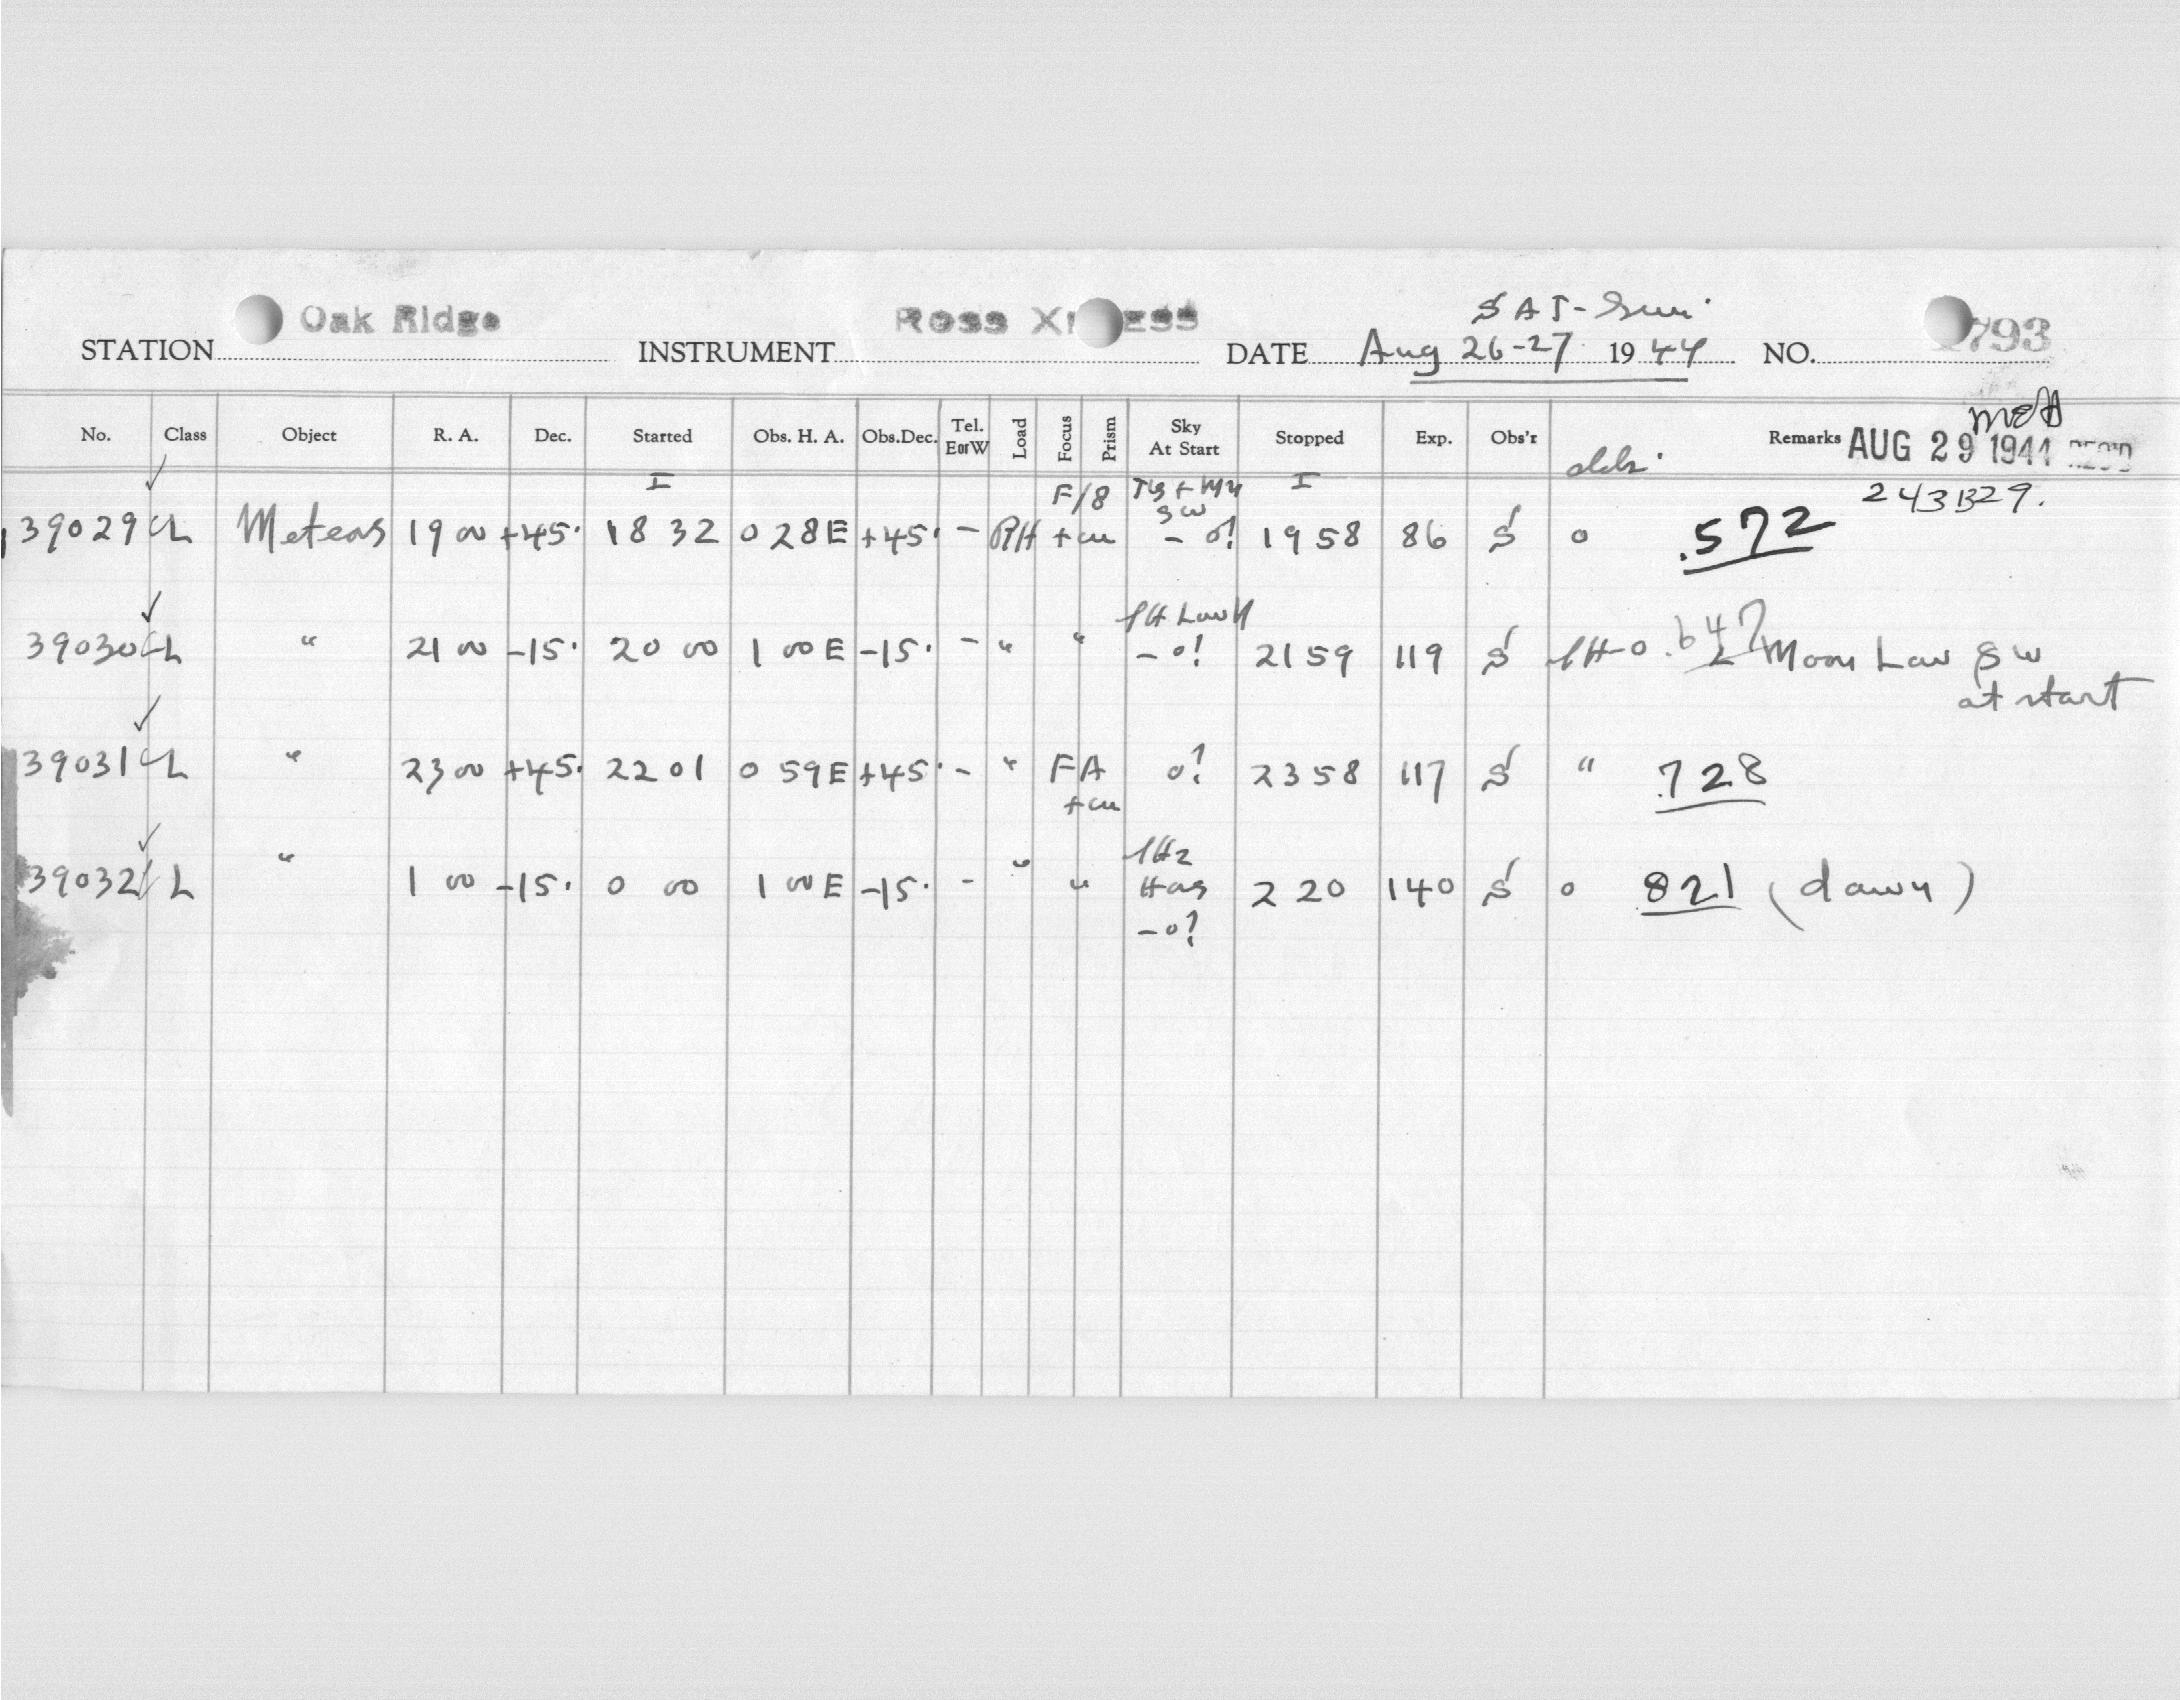 SAT-Sun.
STATION Oak Ridge INSTRUMENT Ross X ess DATE Aug 26-27 1944 NO. 793
No. Class Object R. A. Dec. Started Obs. H. A. Obs.Dec. Tel. E or W Load Focus Prism Sky At Start Stopped Exp. Obs'r Remarks AUG 29 1944 REC'D
I F/8 I 243B29.
SW
39029 CL Meteors 19 00 +45. 18 32 0 28E +45. - RH +cu - o! 1958 86 S o .572
39030 CL " 21 00 -15. 20 00 1 00E -15. - " " - o! 2159 119 S o .647 Moon Low SW
at start
39031 CL " 23 00 +45. 22 01 0 59E +45. - " FA o? 2358 117 S " .728
+cu
39032 L " 1 00 -15. 0 00 1 00E -15. - " " 2 20 140 S o 821 (dawn)
- o?